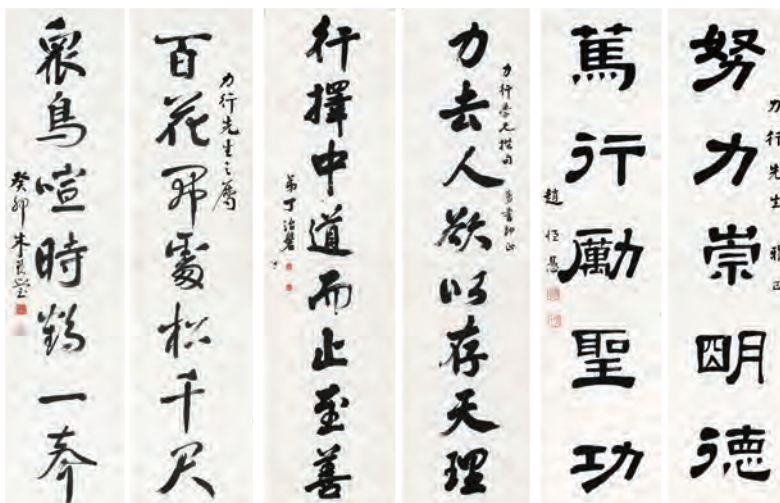 努力崇明德
力行先生 雅正
篤行勵聖功
趙恒惖
力去人欲以存天理
力行學兄撰句 屬書即正
行擇中道而止至善
弟丁治磐
百花開處松千尺
力行先生之屬
眾鳥喧時鶴一
癸卯 朱玖瑩